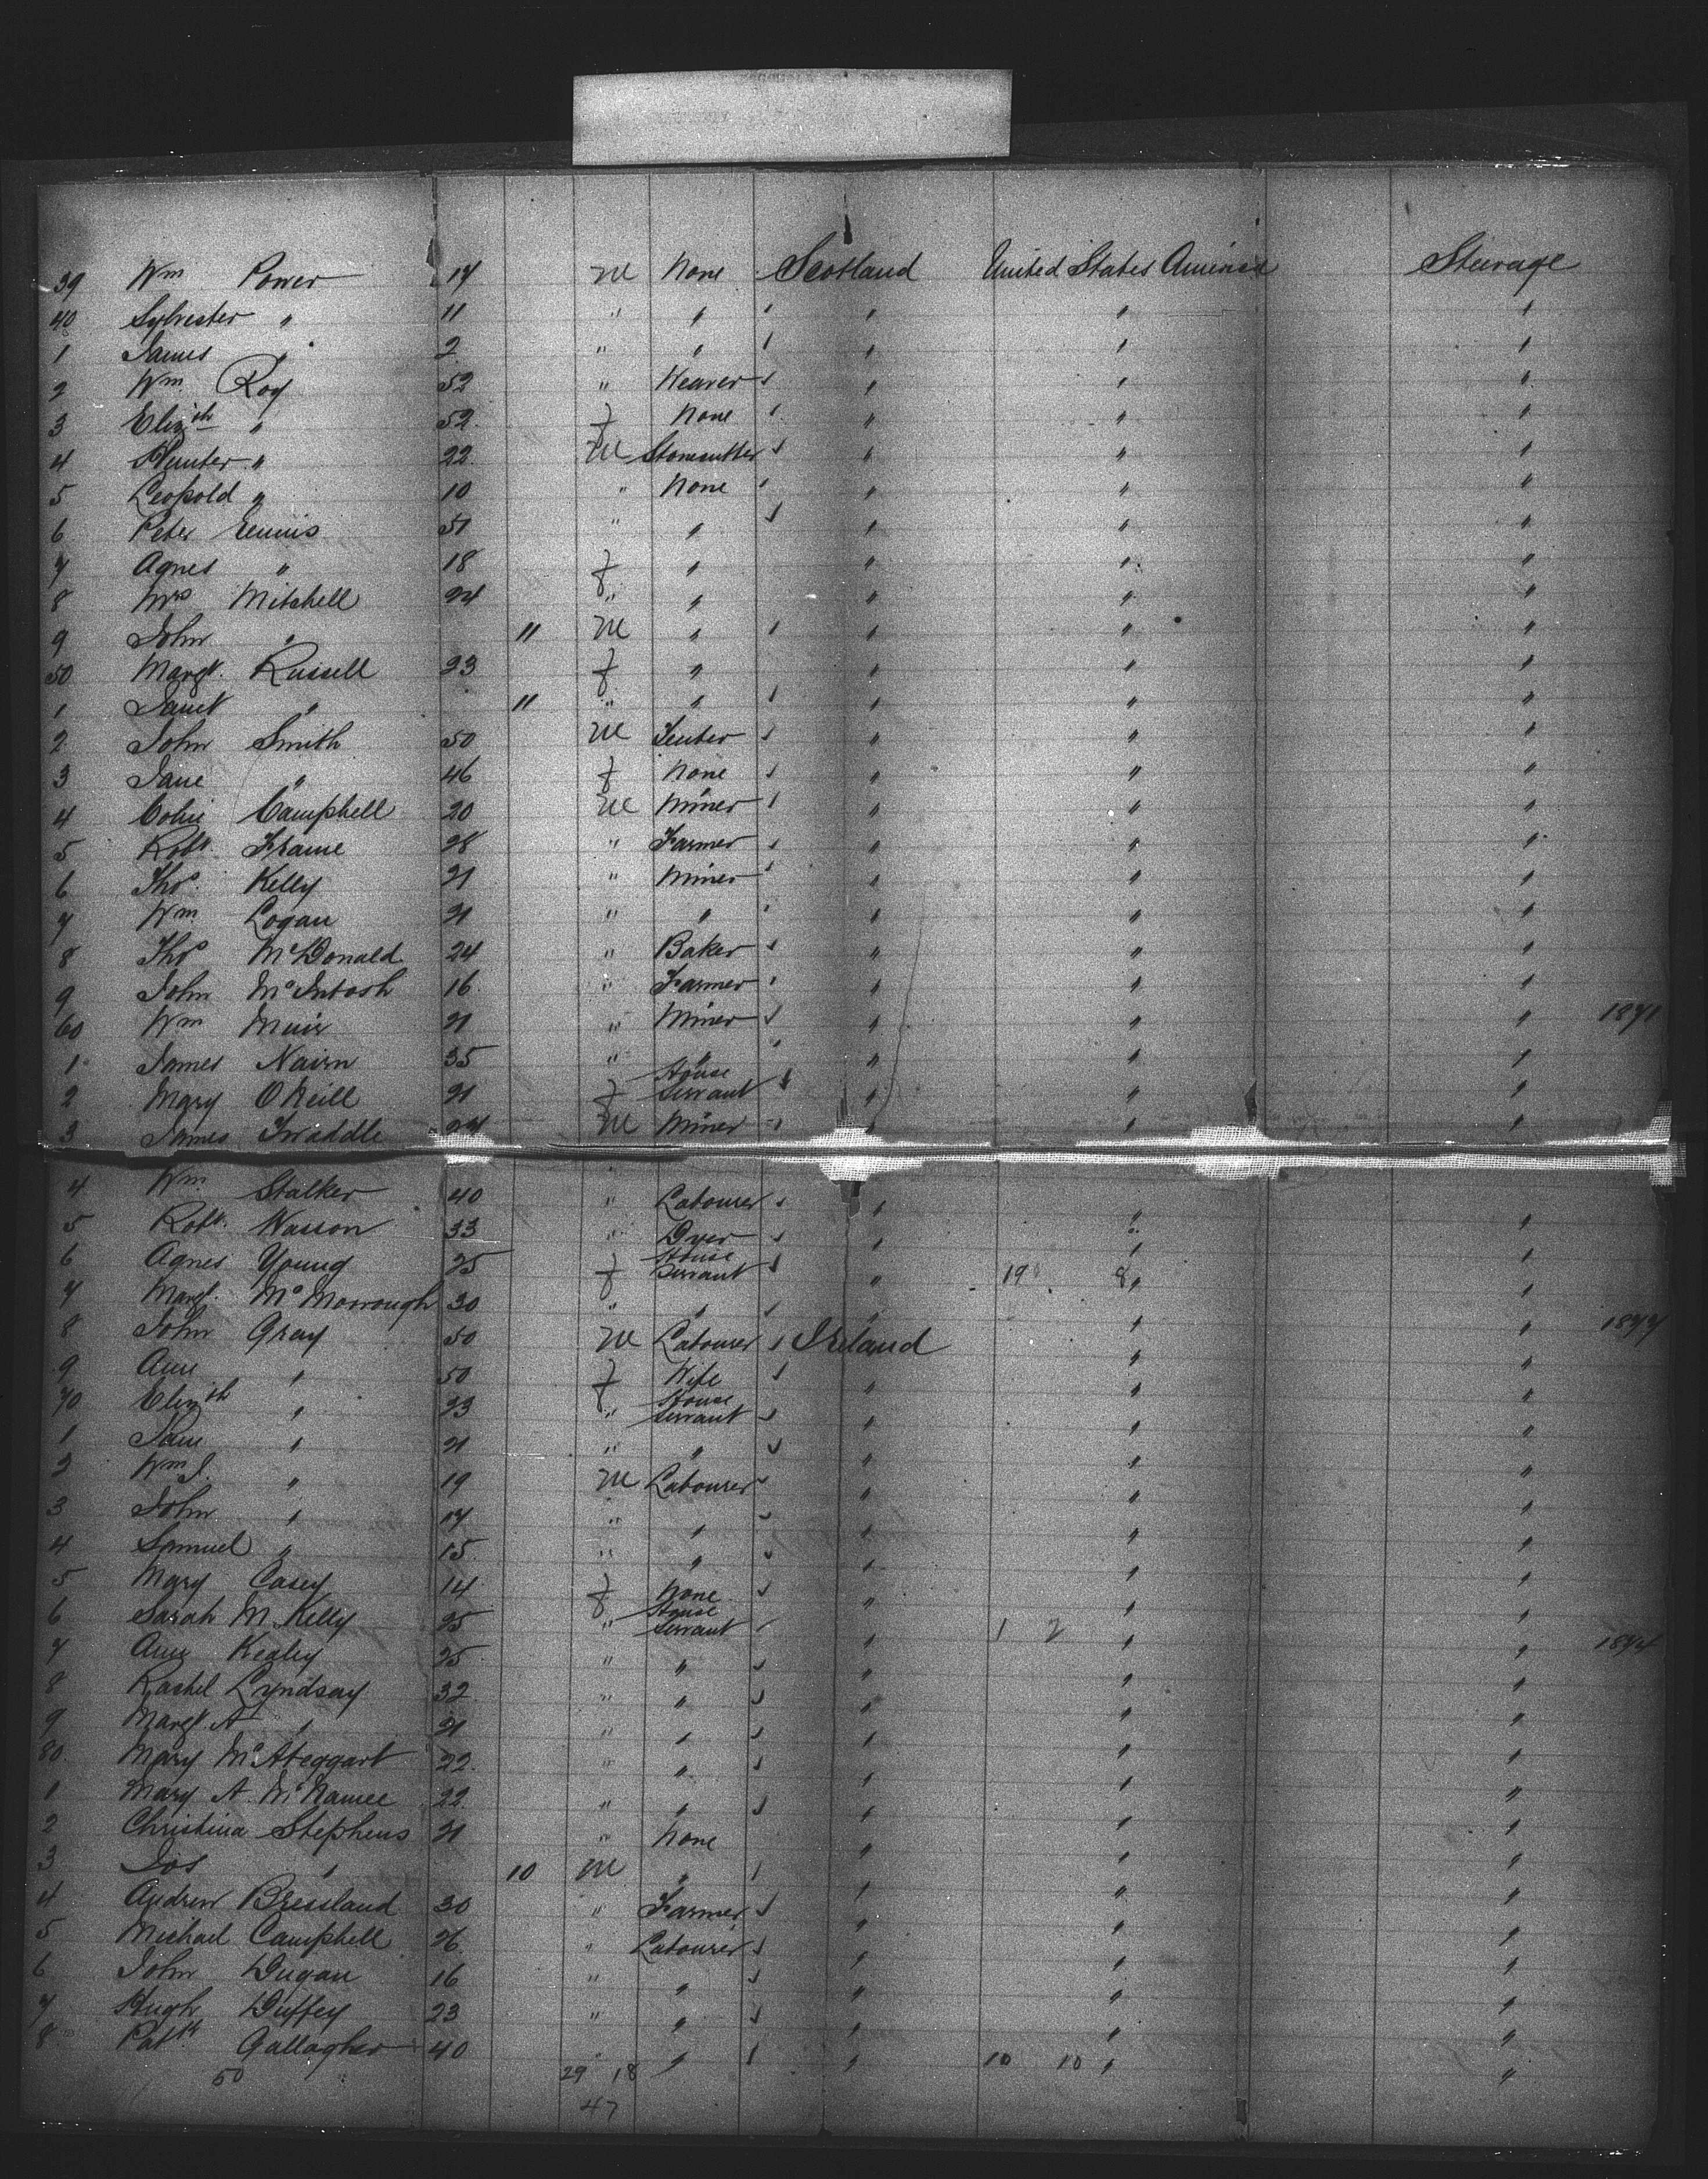 39 Wm Power 17 M None Scotland United States America Steerage
40 Sylvester " 11 " " " " "
1 James " 2 " " " " "
2 Wm Roy 52 " Weaver " " "
3 Elizth " 52 f None " " "
4 Hunter " 22 M Stonecutter " " "
5 Leopold " 10 " None " " "
6 Peter Ennis 51 " " " " "
7 Agnes " 18 f " " " "
8 Mrs Mitchell 24 " " " " "
9 John " 11 M " " " "
50 Margt. Russell 23 f " " " "
1 Janet " 11 " " " " "
2 John Smith 50 M Tenter " " "
3 Jane " 46 f None " " "
4 Colin Campbell 20 M Miner " " "
5 Robt. Frame 28 " Farmer " " "
6 Thos. Kelly 21 " Miner " " "
7 Wm Logan 21 " " " " "
8 Thos McDonald 24 " Baker " " "
9 John McIntosh 16 " Farmer " " "
60 Wm Muir 21 " Miner " " " 1871
1 James Nairn 35 " " " " "
2 Mary O'Neill 21 f House Servant " " "
3 James Twaddle M Miner " " "
4 Wm Stalker 40 " Labourer " " "
5 Robt. Wasson 33 " Dyer " " "
6 Agnes Young 25 f House Servant " 19 8 " "
7 Margt. McMorrough 30 " " " " "
8 John Gray 50 M Labourer Ireland " " 1877
9 Ann " 50 f Wife " " "
70 Elizth " 23 " House Servant " " "
1 Jane " 21 " " " " "
2 Wm J. " 19 M Labourer " " "
3 John " 17 " " " " "
4 Samuel " 15 " " " " "
5 Mary Casey 14 f None " " "
6 Sarah M. Kelly 25 " House Servant " 1 2 " "
7 Ann Kealey 25 " " " " "
8 Rachel Lyndsay 32 " " " " "
9 Margt. A " 21 " " " " "
80 Mary McAteggart 22 " " " " "
1 Mary A. McNamee 22 " " " " "
2 Christina Stephens 21 " None " " "
3 Jos " 10 M " " " "
4 Andrew Bressland 30 " Farmer " " "
5 Michael Campbell 26 " Labourer " " "
6 John Dugan 16 " " " " "
7 Hugh Duffey 23 " " " " "
8 Patk. Gallagher 40 " " 10 10 " "
50 29 18
47